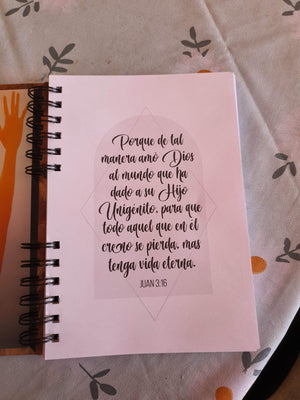 Porque de tal
manera amó Dios
al mundo que ha
dado a su Hijo
Unigénito, para que
todo aquel que en él
creeno se pierda, mas
tenga vida eterna.
JUAN 3:16